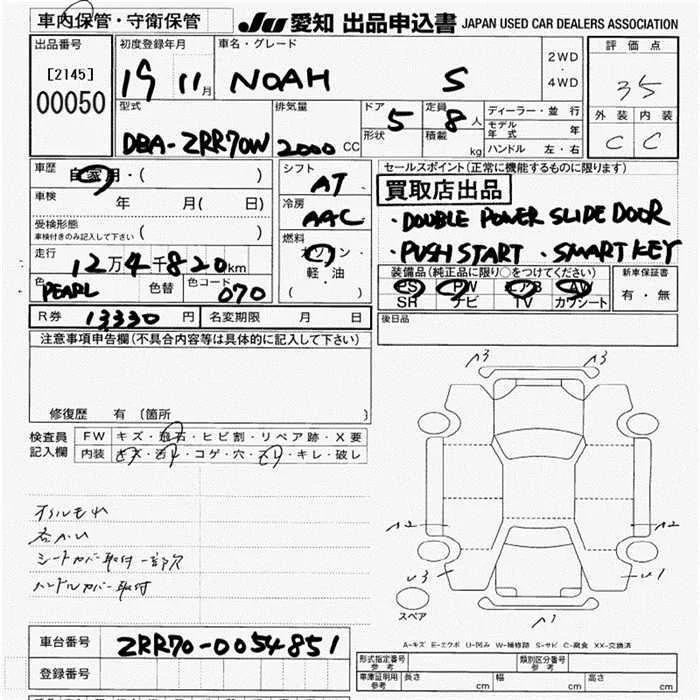 車内保管・守衛保管
JU 愛知 出品申込書 JAPAN USED CAR DEALERS ASSOCIATION
出品番号
[2145]
00050
初度登録年月
19 11月
車名・グレード
NOAH S
2WD
・
4WD
評価点
35
外装 内装
C C
型式
DBA-ZRR70W
排気量
2000 CC
ドア
5
形状
定員
8人
積載
kg
ディーラー・並行
モデル年式 年
ハンドル 左・右
車歴
自家用・( )
車検
年 月( 日)
受検形態
車検付きのみ記入して下さい ( )
走行
12万4千820km
色
PEARL 色替
色コード
070
シフト
AT
冷房
AAC
燃料
ガソリン・
軽・油
( )
セールスポイント(正常に機能するものに限ります)
買取店出品
・DOUBLE POWER SLIDE DOOR
・PUSH START ・SMART KEY
装備品(純正品に限り○をつけてください)
PS PW エアB AW
SR ナビ TV カワシート
新車保証書
有・無
R券 13330円
名変期限 月 日
後日品
注意事項申告欄(不具合内容等は具体的に記入して下さい)
修復歴 有 〔箇所 〕
検査員
記入欄
FW キズ・飛石・ヒビ割・リペア跡・X要
内装 キズ・汚れ・コゲ・穴・スレ・キレ・破レ
シートカバー取付 一部欠
ハンドルカバー取付
A3 A3
A2 A2
U3 U1
A1
スペア
A-キズ E-エクボ U-凹み W-補修跡 S-サビ C-腐食 XX-交換済
車台番号
ZRR70-0054851
登録番号
形式指定番号
参考
類別区分番号
参考
車庫証明用
参考
長さ cm
幅 cm
高さ cm